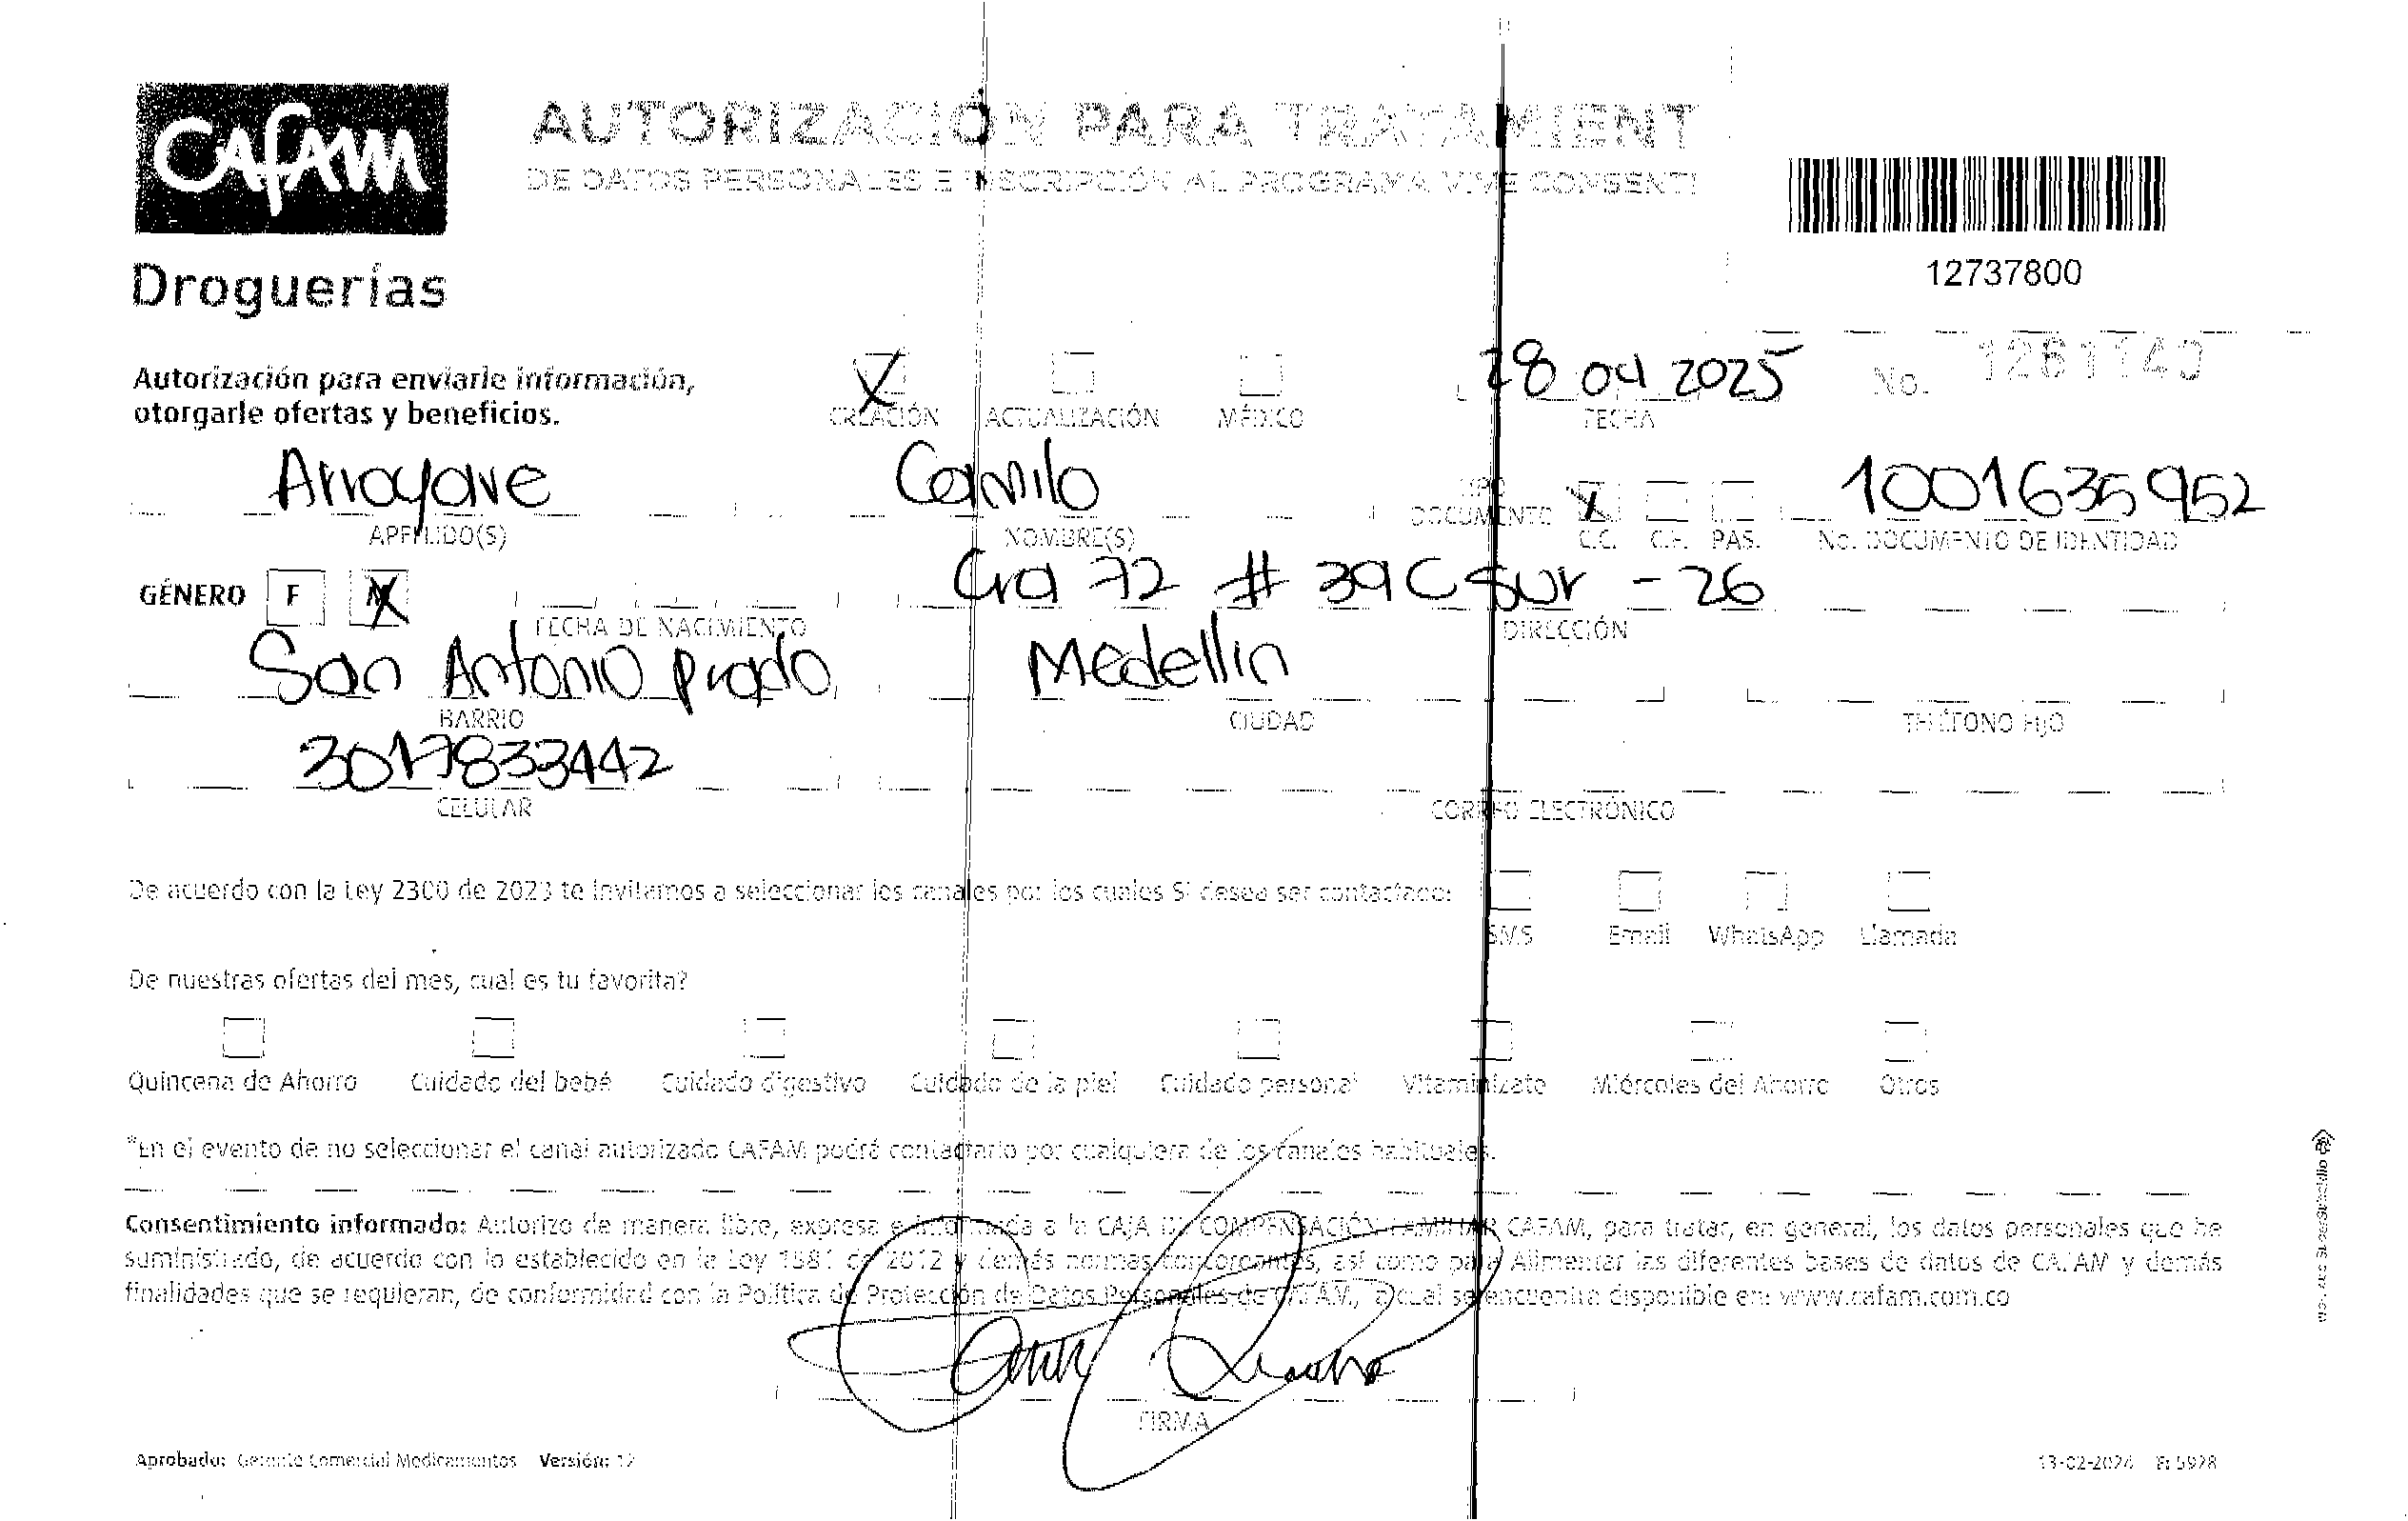 CAFAM
Droguerías
AUTORIZACIÓN PARA TRATAMIENT
DE DATOS PERSONALES E INSCRIPCIÓN AL PROGRAMA VIVE CONSENTI
12737800
Autorización para enviarle información,
otorgarle ofertas y beneficios.
X CREACIÓN ACTUALIZACIÓN MÉDICO
28 04 2025
FECHA
No. 1261140
Arroyave Camilo
APELLIDO(S) NOMBRE(S)
TIPO DOCUMENTO X C.C. C.E. PAS.
1001635952
No. DOCUMENTO DE IDENTIDAD
GÉNERO F M X
FECHA DE NACIMIENTO
Cra 72 # 39C sur - 26
DIRECCIÓN
San Antonio prado Medellin
BARRIO CIUDAD TELÉFONO FIJO
3017833442
CELULAR CORREO ELECTRÓNICO
De acuerdo con la Ley 2300 de 2023 te invitamos a seleccionar los canales por los cuales SI desea ser contactado:
SMS Email WhatsApp Llamada
De nuestras ofertas del mes, cual es tu favorita?
Quincena de Ahorro Cuidado del bebé Cuidado digestivo Cuidado de la piel Cuidado personal Vitaminízate Miércoles del Ahorro Otros
*En el evento de no seleccionar el canal autorizado CAFAM podrá contactarlo por cualquiera de los canales habituales.
Consentimiento informado: Autorizo de manera libre, expresa e informada a la CAJA DE COMPENSACIÓN FAMILIAR CAFAM, para tratar, en general, los datos personales que he
suministrado, de acuerdo con lo establecido en la Ley 1581 de 2012 y demás normas concordantes, así como para Alimentar las diferentes bases de datos de CAFAM y demás
finalidades que se requieran, de conformidad con la Política de Protección de Datos Personales de CAFAM, la cual se encuentra disponible en: www.cafam.com.co
FIRMA
Aprobado: Gerente Comercial Medicamentos Versión: 12
13-02-2024